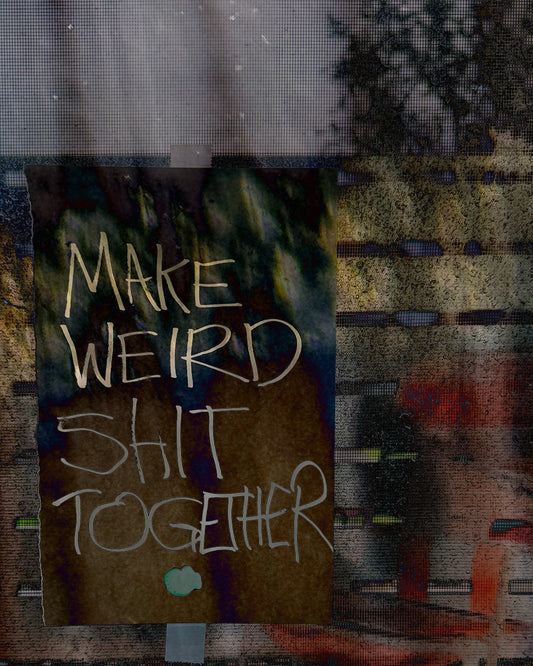 MAKE
WEIRD
SHIT
TOGETHER